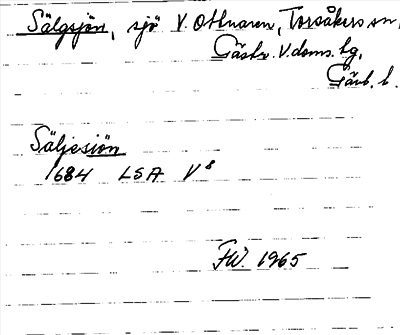 Sälgsjön, sjö V. Othnaren, Torsåkers sn,
Gästr. V. doms. hg,
Gävb. l.
Säljesiön
1684 LSA V 8
FW. 1965